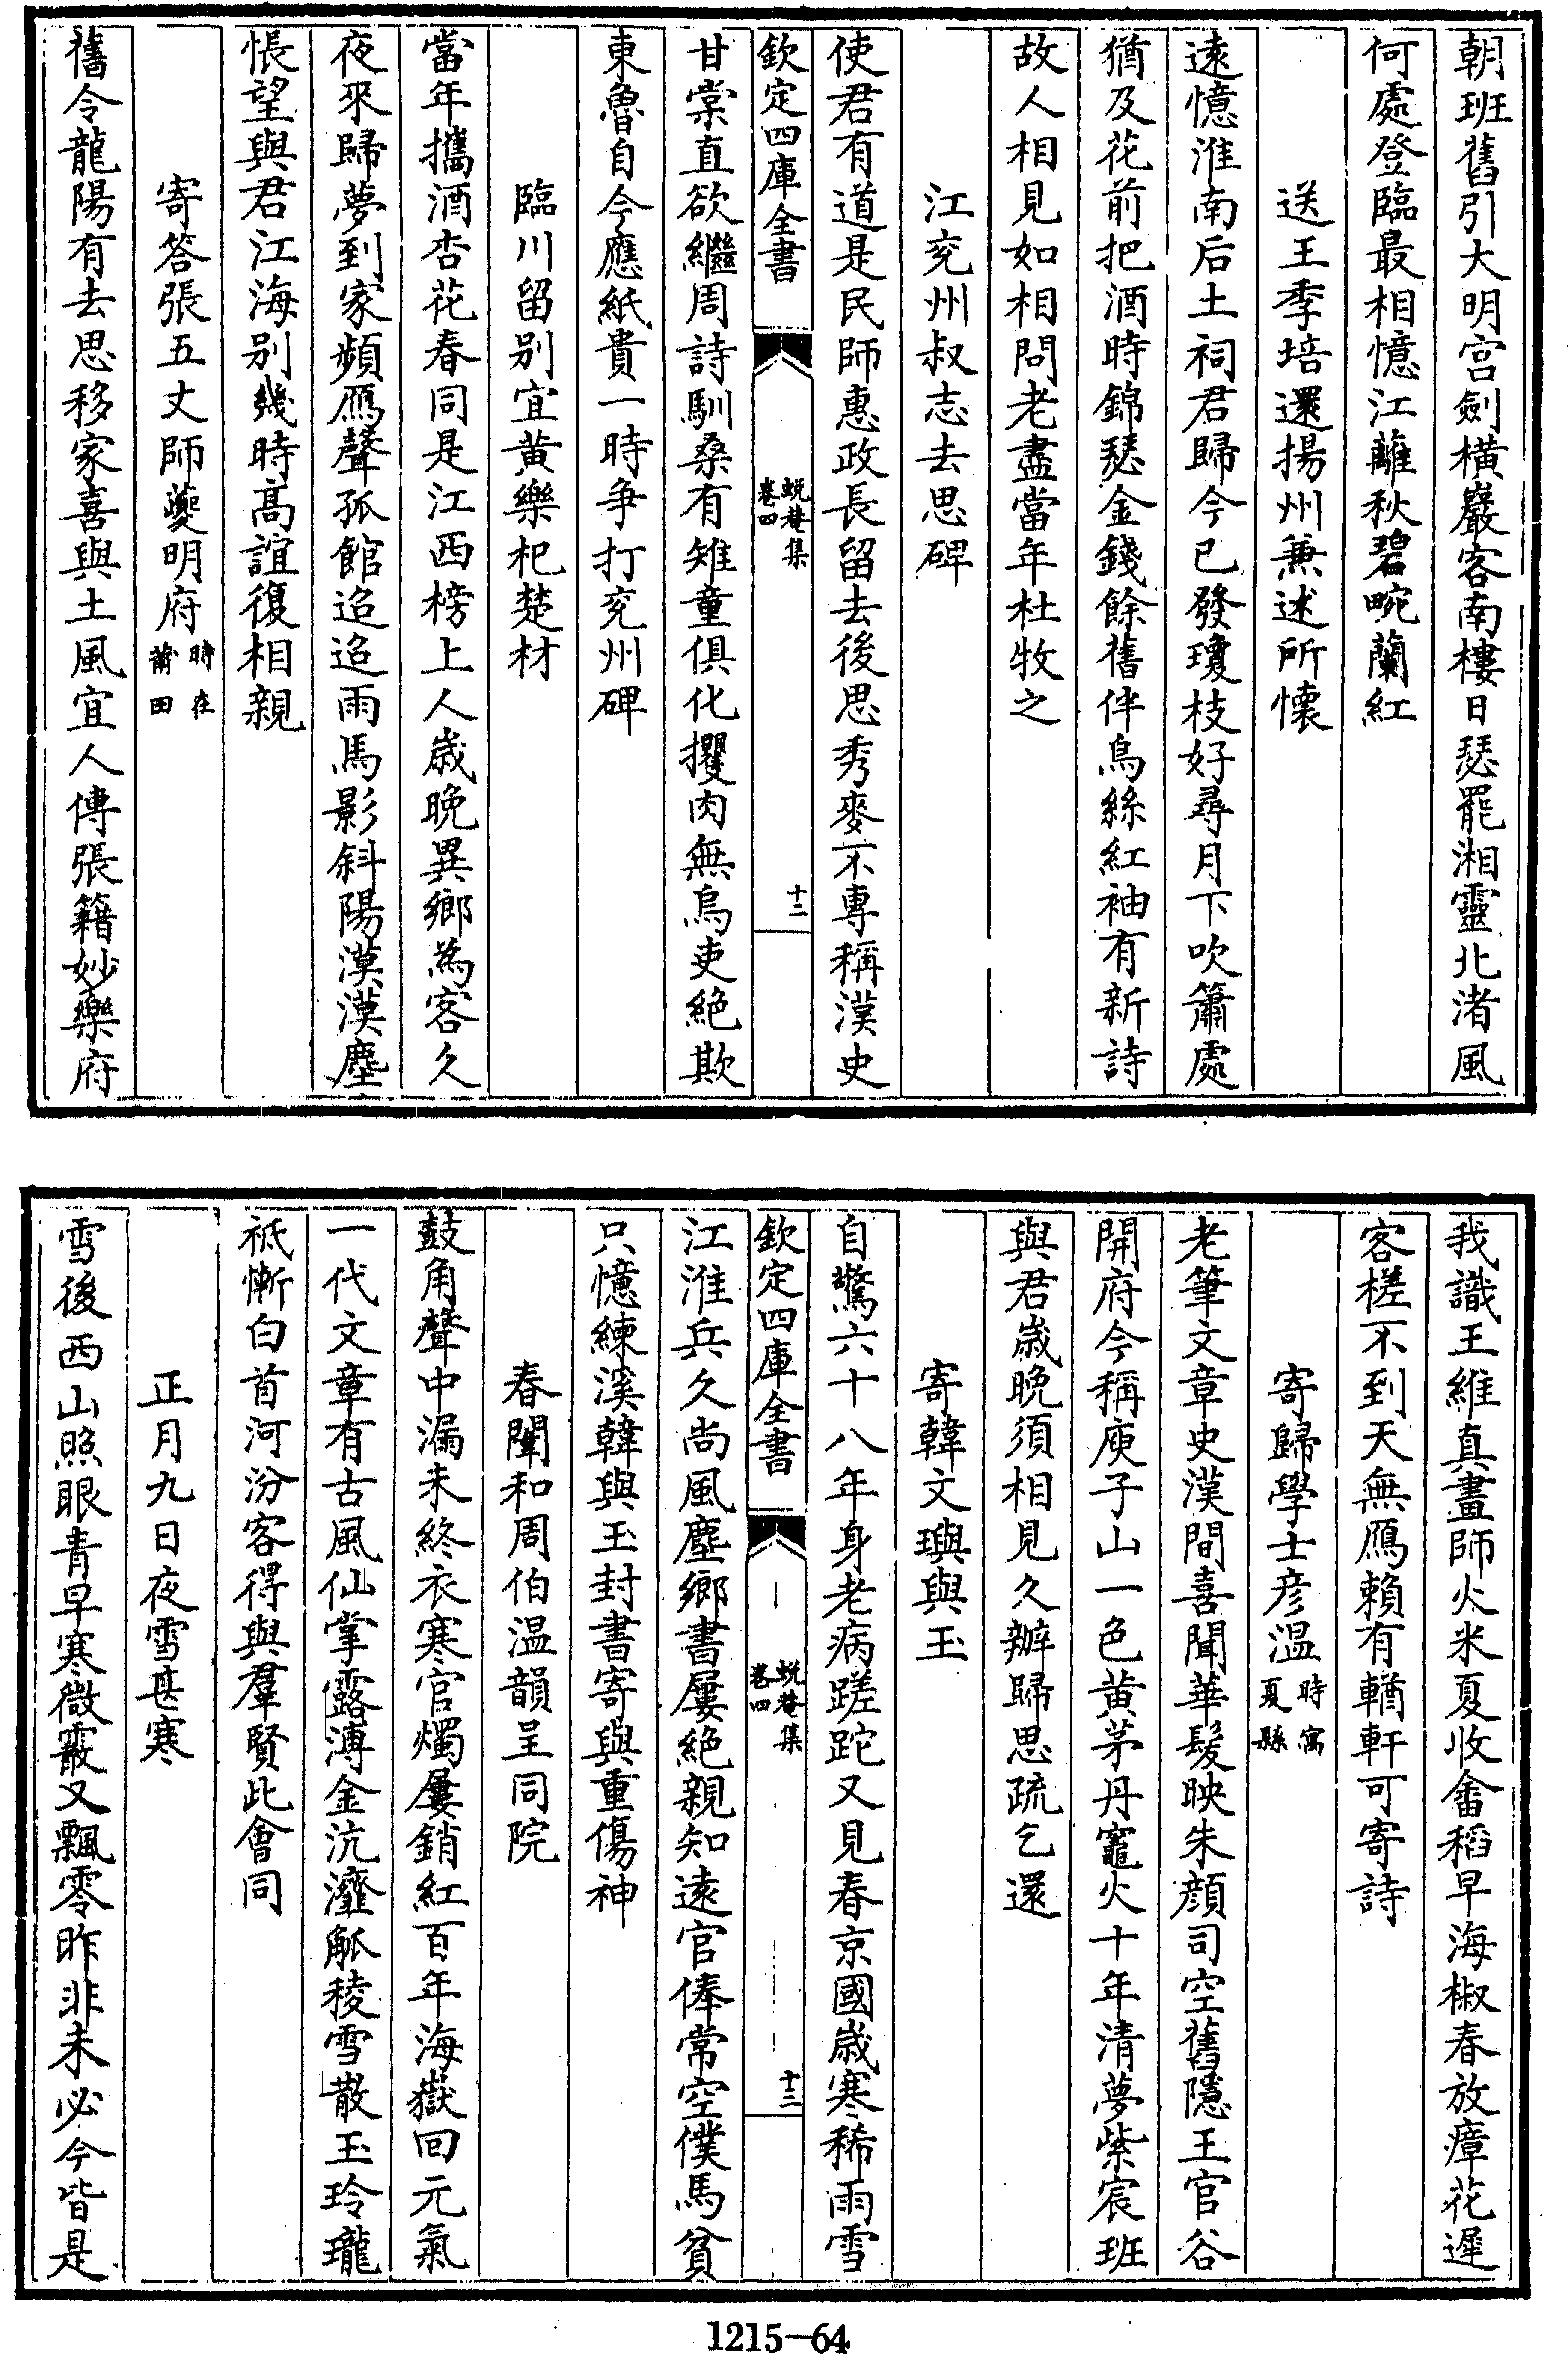 朝班舊引大明宫劍橫巖客南樓日瑟罷湘靈北渚風
何處登臨最相憶江蘺秋碧畹蘭紅
送王季培還揚州兼述所懷
遠憶淮南后土祠君歸今已發瓊枝好尋月下吹簫處
猶及花前把酒時錦瑟金錢餘舊伴烏絲紅袖有新詩
故人相見如相問老盡當年杜牧之
江兖州叔志去思碑
使君有道是民師惠政長留去後思秀麥不專稱漢史
欽定四庫全書
蛻菴集
卷四
十二
甘棠直欲繼周詩馴桑有雉童俱化攫肉無烏吏絶欺
東魯自今應紙貴一時爭打兖州碑
臨川留别宜黄樂杞楚材
當年攜酒杏花春同是江西榜上人歲晚異鄉為客久
夜來歸夢到家頻鴈聲孤館迢迢雨馬影斜陽漠漠塵
悵望與君江海别幾時髙誼復相親
寄答張五丈師夔明府時在莆田
舊令龍陽有去思移家喜與土風宜人傳張籍妙樂府
我識王維真畫師火米夏收畬稻早海椒春放瘴花遲
客槎不到天無鴈賴有輶軒可寄詩
寄歸學士彦温時寓夏縣
老筆文章史漢間喜聞華髮映朱顔司空舊隱王官谷
開府今稱庾子山一色黄茅丹竈火十年清夢紫宸班
與君歲晚須相見久辦歸思疏乞還
寄韓文璵與玉
自驚六十八年身老病蹉跎又見春京國歲寒稀雨雪
欽定四庫全書
蛻菴集
卷四
十三
江淮兵久尚風塵鄉書屢絶親知遠官俸常空僕馬貧
只憶練溪韓與玉封書寄與重傷神
春闈和周伯温韻呈同院
鼓角聲中漏未終衣寒官燭屢銷紅百年海嶽回元氣
一代文章有古風仙掌露漙金沆瀣觚稜雪散玉玲瓏
祗慚白首河汾客得與羣賢此會同
正月九日夜雪甚寒
雪後西山照眼青早寒微霰又飄零昨非未必今皆是
1215-64